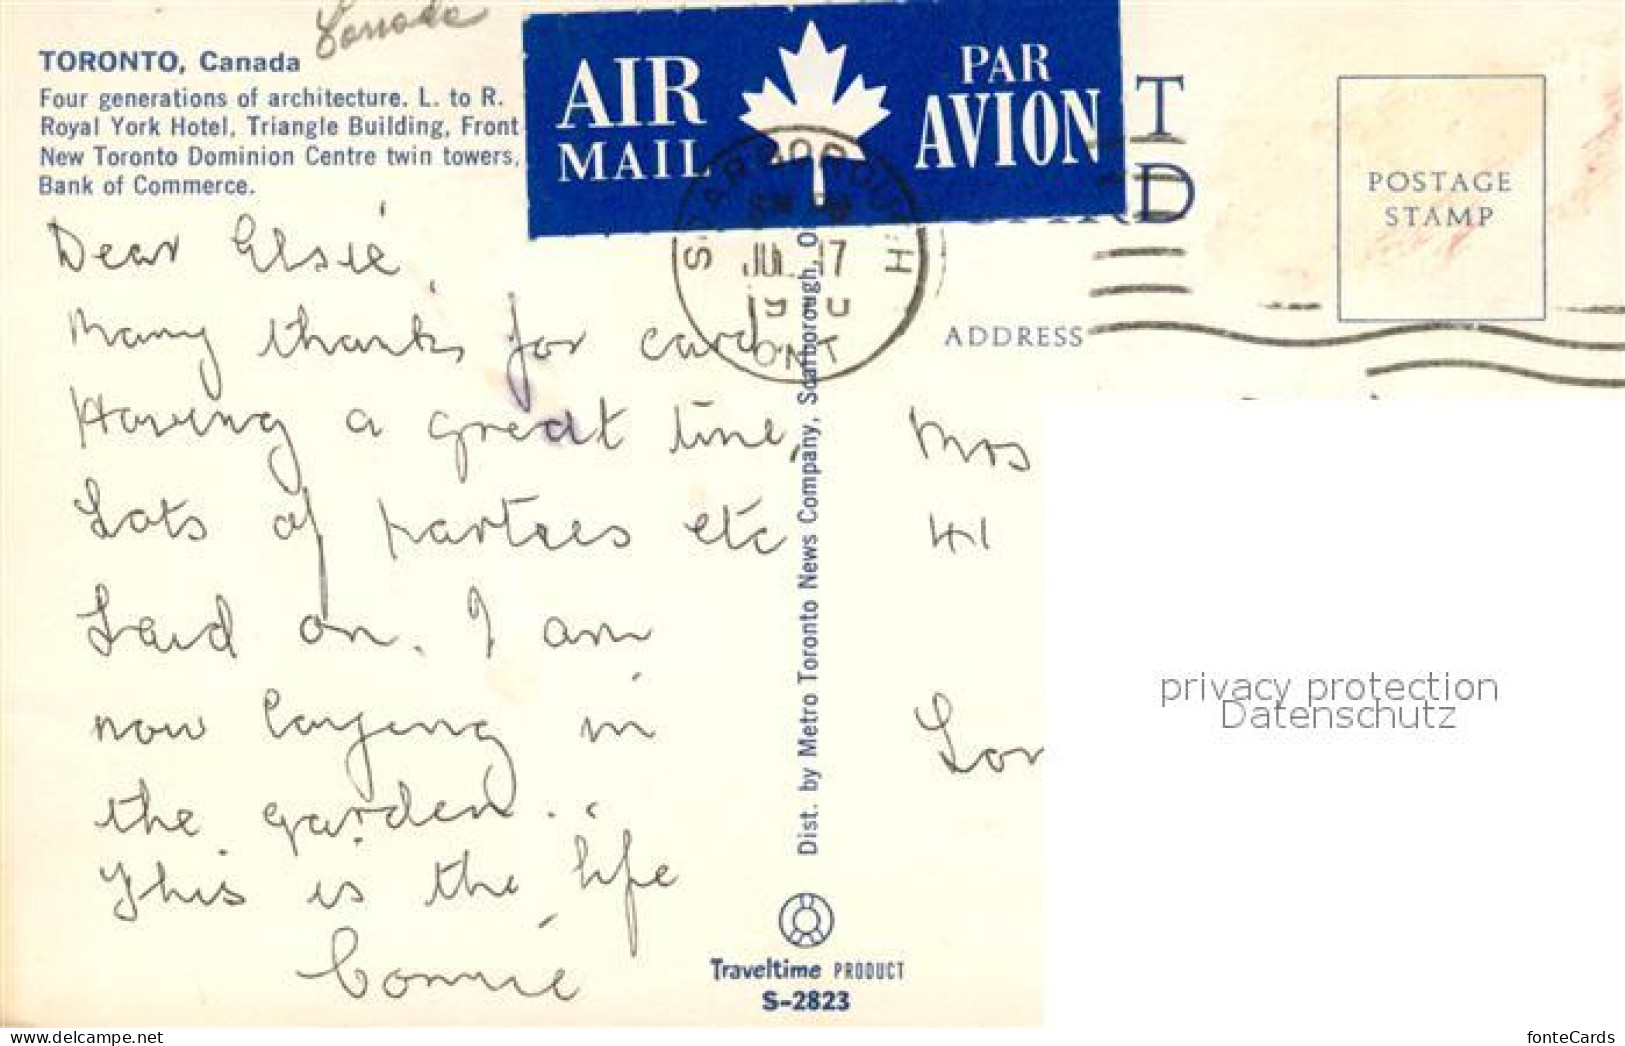 Canada
TORONTO, Canada
Four generations of architecture. L. to R.
Royal York Hotel, Triangle Building, Front
New Toronto Dominion Centre twin towers,
Bank of Commerce.
AIR MAIL
PAR AVION
T
RD
POSTAGE
STAMP
SCARBOROUGH
JUL 17
ONT
ADDRESS
Dear Elsie,
Many thanks for card.
Having a great time,
Lots of parties etc
Laid on. I am
now laying in
the garden..
This is the life
Connie
Mrs
41
Lon
Dist. by Metro Toronto News Company, Scarborough, O
Traveltime PRODUCT
S-2823
privacy protection
Datenschutz
www.delcampe.net
fonteCards